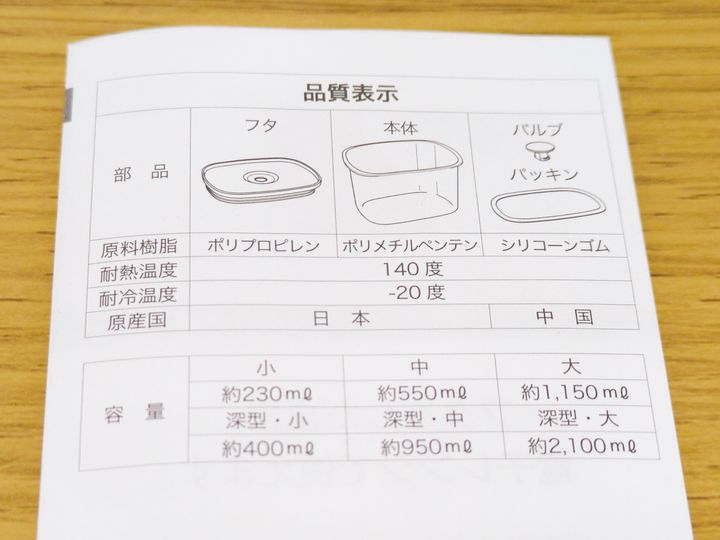 品質表示
部品 フタ 本体 バルブ
パッキン
原料樹脂 ポリプロピレン ポリメチルペンテン シリコーンゴム
耐熱温度 140度
耐冷温度 -20度
原産国 日本 中国
容量 小 中 大
約230mℓ 約550mℓ 約1,150mℓ
深型・小 深型・中 深型・大
約400mℓ 約950mℓ 約2,100mℓ